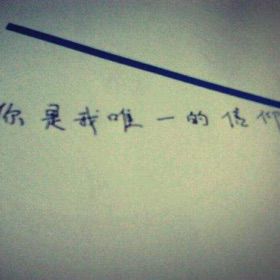 你是我唯一的信仰